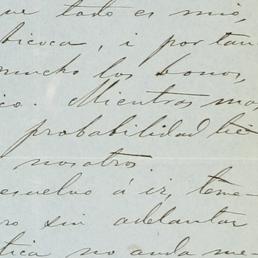 que todo es mio,
bicoca, i por tan
mucho los bonos,
co. Mientras mas
probabilidad tie
nosotros
esuelve á ir, tene-
ro sin adelantar
tica no anda me-